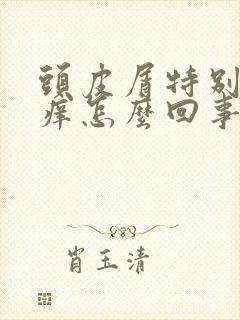 頭皮屑特別
癢怎麼回事
肖玉清